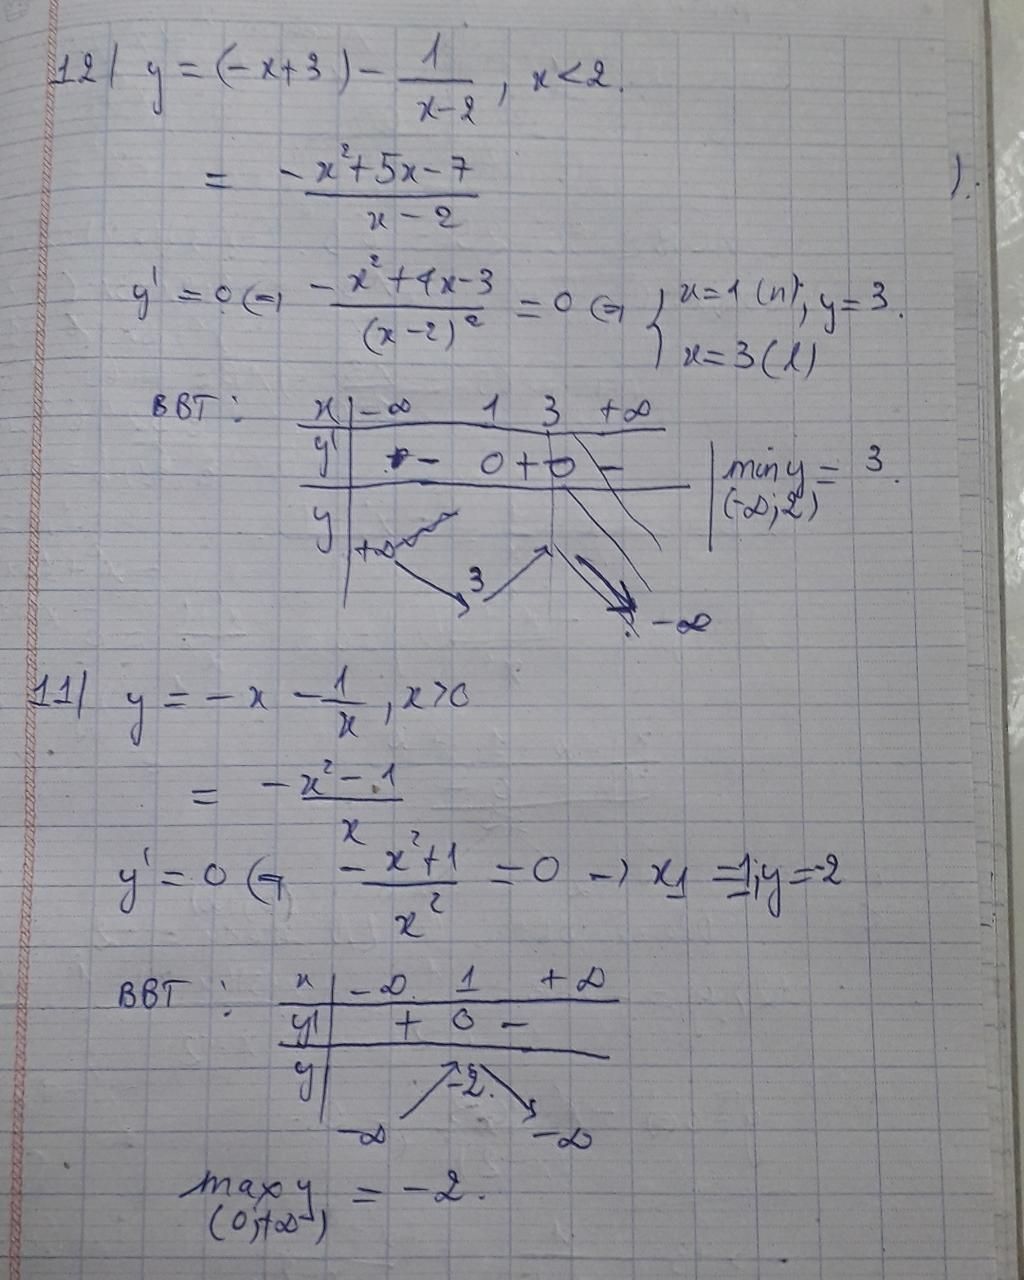 12/ y = (-x+3) - 1/(x-2), x<2.
= (-x²+5x-7)/(x-2)
y' = 0 ⇔ (-x²+4x-3)/(x-2)² = 0 ⇔ { x=1 (n), y=3.
x=3 (l)
BBT :
x | -∞ 1 3 +∞
y' | - 0 + 0 -
y | +∞ 3 -∞
min y = 3.
(-∞;2)
11/ y = -x - 1/x, x>0
= (-x²-1)/x
y' = 0 ⇔ (-x²+1)/x² = 0 → x₁ = 1; y = -2
BBT :
x | -∞ 1 +∞
y' | + 0 -
y | -∞ -2. -∞
max y = -2.
(0;+∞)